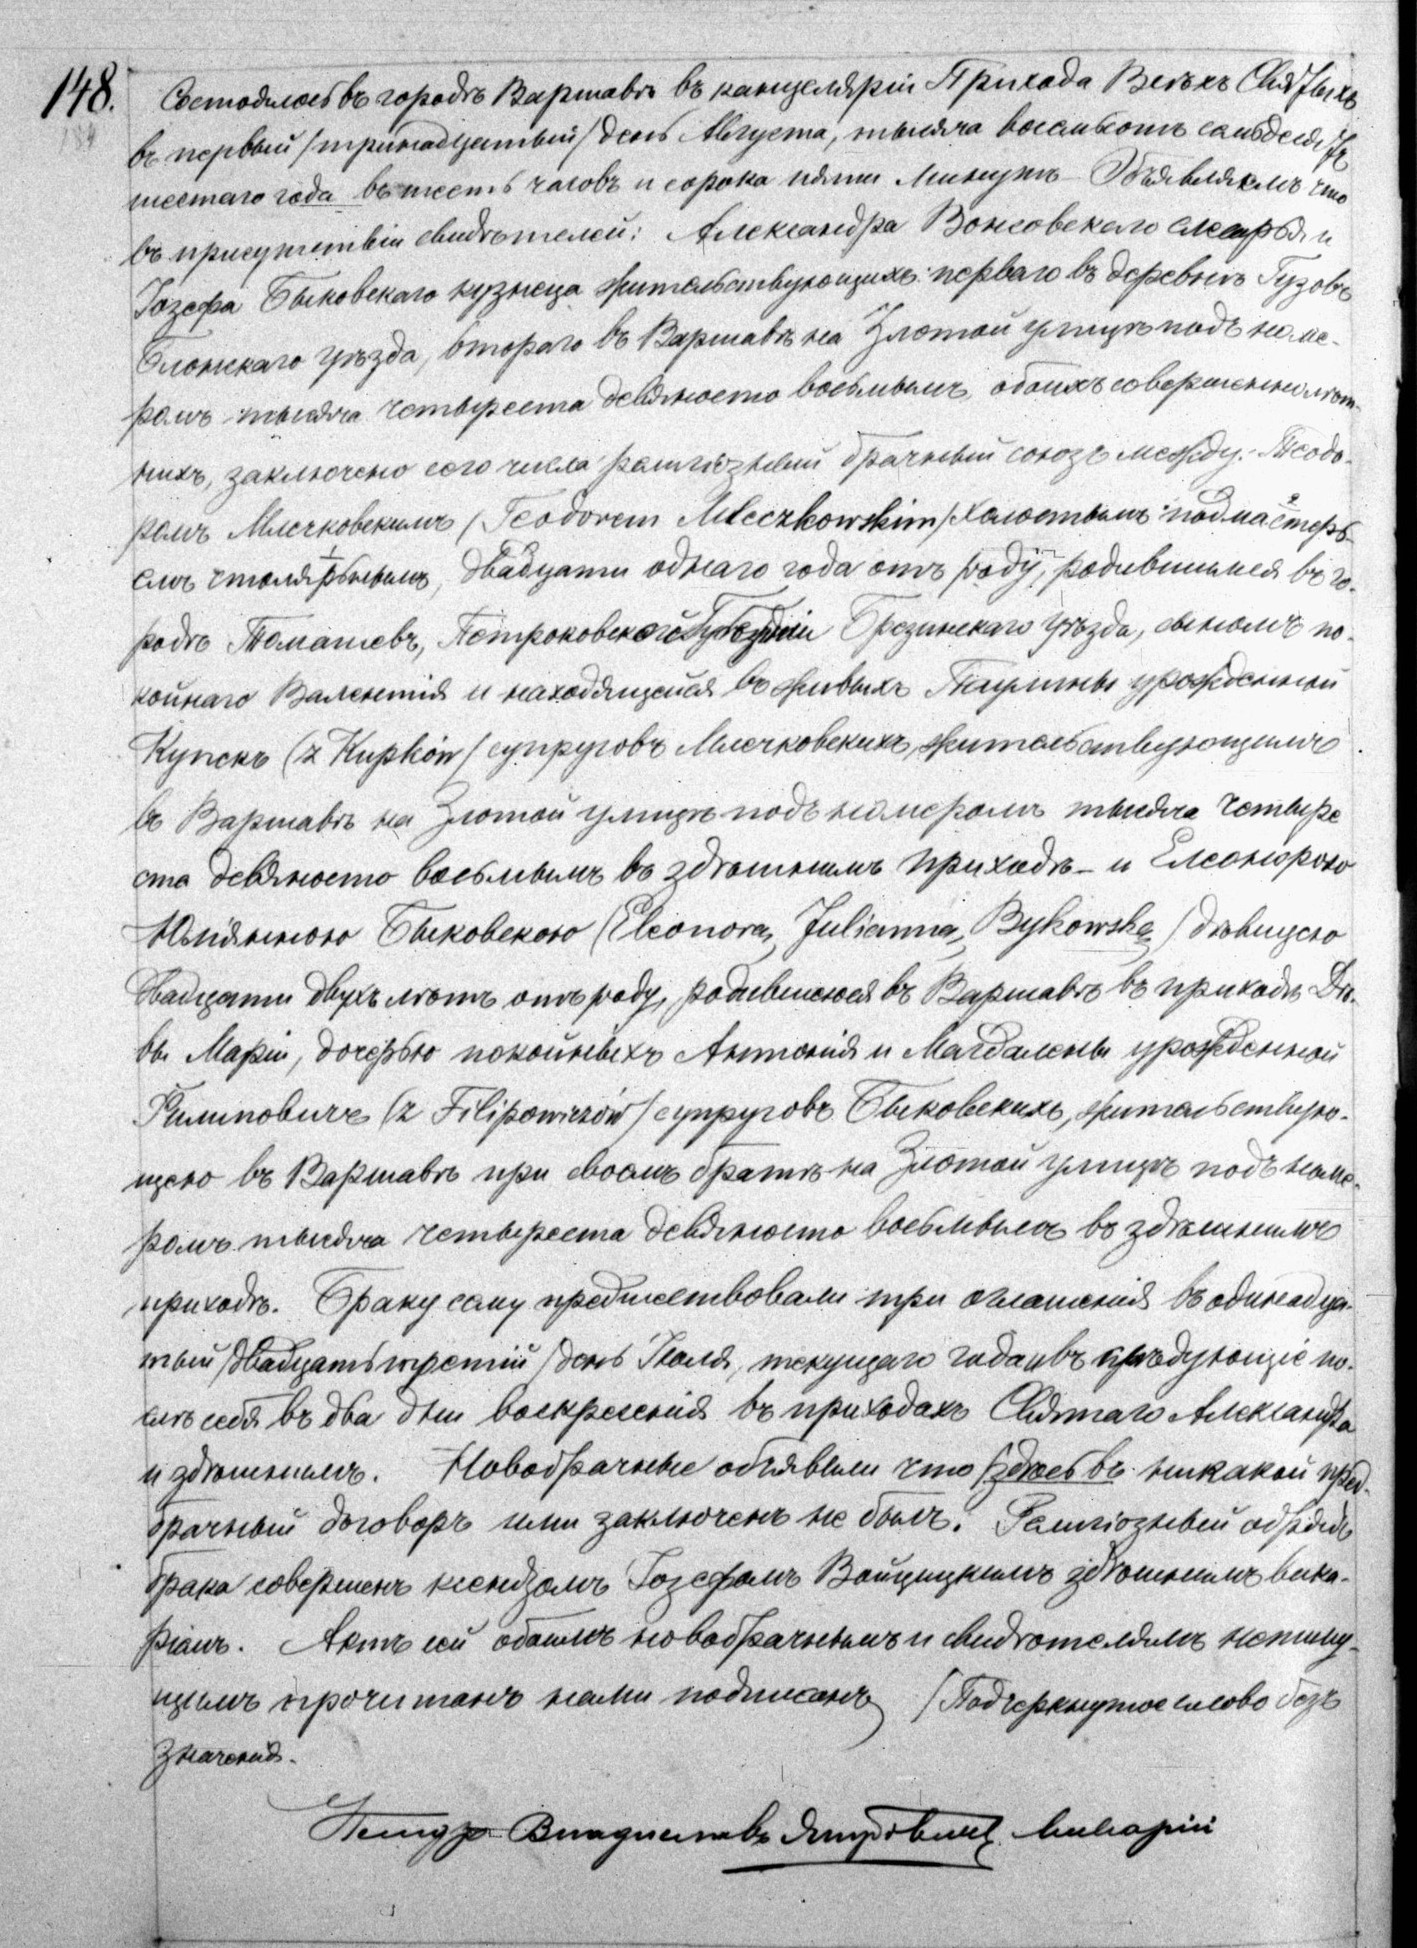 148.
Состоялось въ городѣ Варшавѣ въ канцеляріи Прихода Всѣхъ Святыхъ
въ первый /тринадцатый/ день Августа, тысяча восемьсотъ семьдесятъ
шестаго года въ шесть часовъ и сорока пяти минутъ – Объявляемъ что
въ присутствіи свидѣтелей: Александра Вонсовскаго и
Іозефа Быковскаго кузнеца жительствующихъ: перваго въ деревнѣ Гузовѣ
Блонскаго уѣзда, втораго въ Варшавѣ на Злотой улицѣ подъ номе-
ромъ тысяча четыреста девяносто восьмымъ, обоихъ совершеннолѣт-
нихъ, заключено сего числа религіозный брачный союзъ между: Теодо-
ромъ Млечковскимъ /Teodorem Mleczkowskim/ холостымъ подмастерь-
емъ столярнымъ, двадцати однаго года отъ роду, родившимся въ го-
родѣ Томашевѣ, Петроковской Губерніи Брезинскаго уѣзда, сыномъ по-
койнаго Валентія и находящейся въ живыхъ Паулины урожденной
Купекъ (z Kupków/ супруговъ Млечковскихъ, жительствующимъ
въ Варшавѣ на Злотой улицѣ подъ номеромъ тысяча четыре
ста девяносто восьмымъ въ здѣшнемъ приходѣ – и Елеонорою
Юліанною Быковскою (Eleonorą Julianną Bykowską/ дѣвицею
двадцати двухъ лѣтъ отъ роду, родившеюся въ Варшавѣ въ приходѣ Дѣ-
вы Маріи, дочерью покойныхъ Антонія и Магдалены урожденной
Филиповичъ (z Filipowiczów/ супруговъ Быковскихъ, жительствую-
щею въ Варшавѣ при своемъ братѣ на Злотой улицѣ подъ номе-
ромъ тысяча четыреста девяносто восьмымъ въ здѣшнемъ
приходѣ. Браку сему предшествовали три оглашенія въ одинадца-
тый /двадцать третій/ день Іюля, текущаго года и въ слѣдующіе по-
слѣ себя въ два дни воскресенія въ приходахъ Святаго Александра
и здѣшнемъ. Новобрачные объявили что /здѣсь въ никакой пред-
брачный договоръ ими заключенъ не былъ. Религіозный обрядъ
брака совершенъ ксендзомъ Іозефомъ Войцицкимъ здѣшнимъ вика-
ріемъ. Актъ сей обоимъ новобрачнымъ и свидѣтелямъ непишу-
щимъ прочитанъ нами подписанъ /Подчеркнутое слово безъ
значенія.
Ксендзъ Владиславъ Викарій